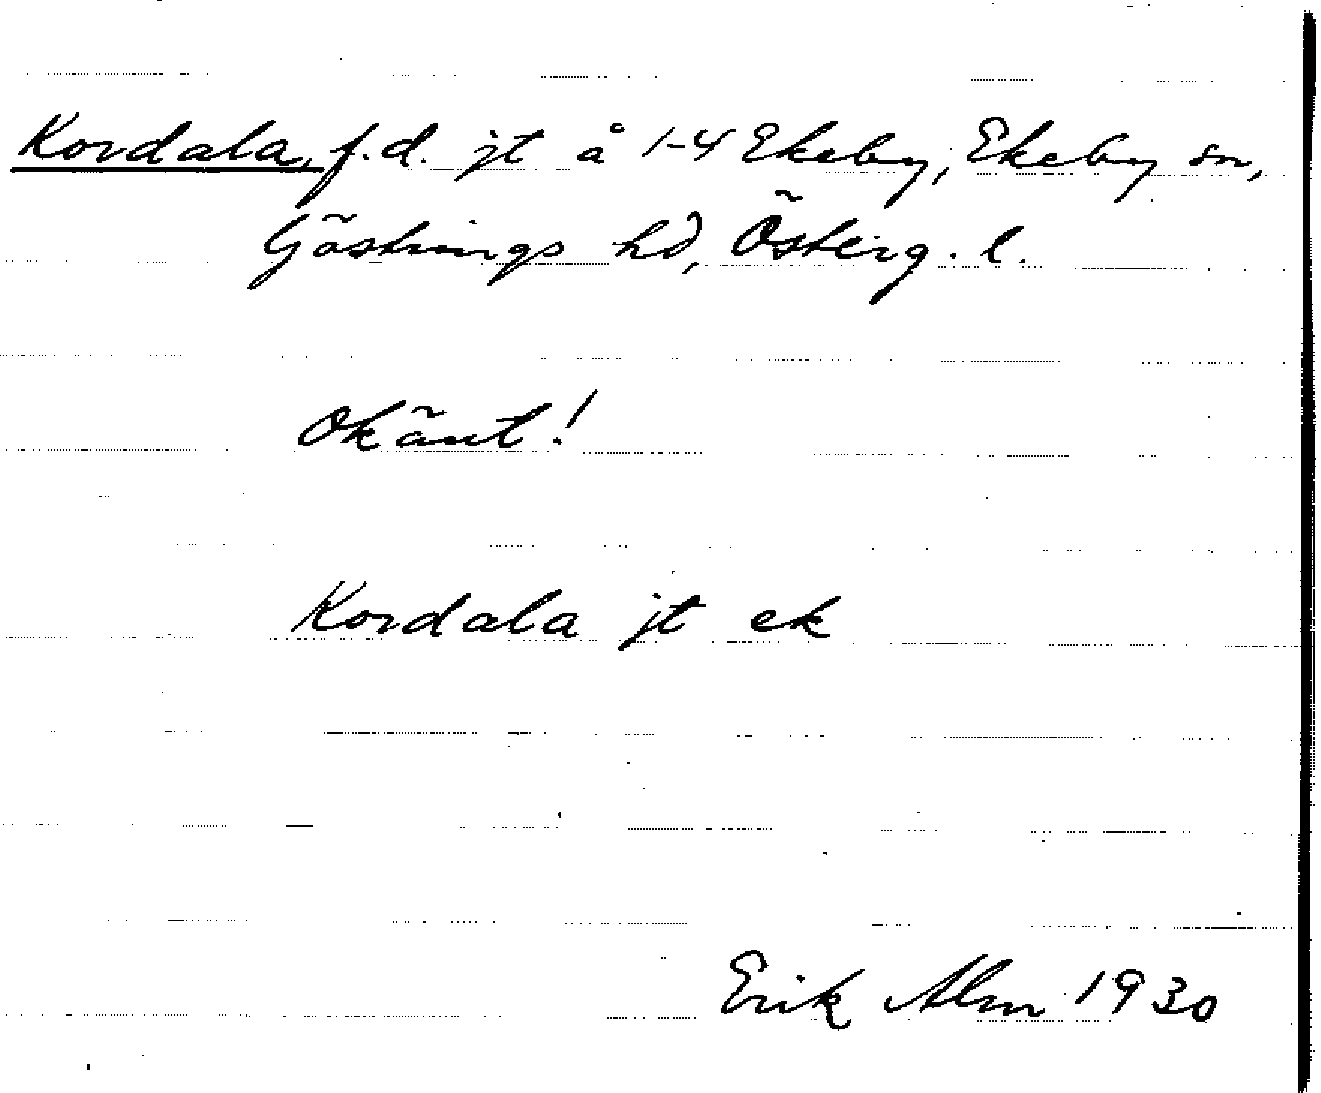 Kordala, f.d. jt å 1-4 Ekeby, Ekeby sn,
Göstrings hd, Österg. l.
Okänt!
Kordala jt ek
Erik Alm 1930